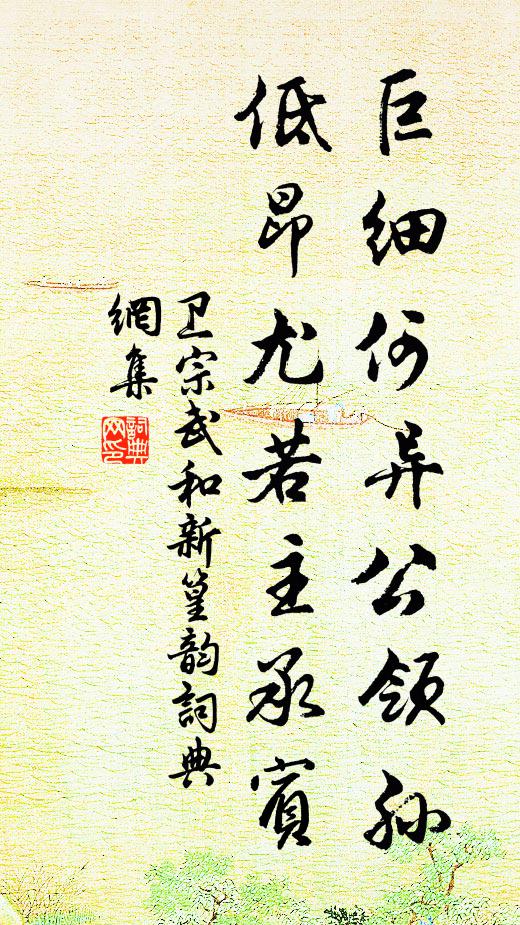 巨细何异公领孙
低昂尤若主承賓
卫宗武和新篁韵詞典
網集
詞典
网印